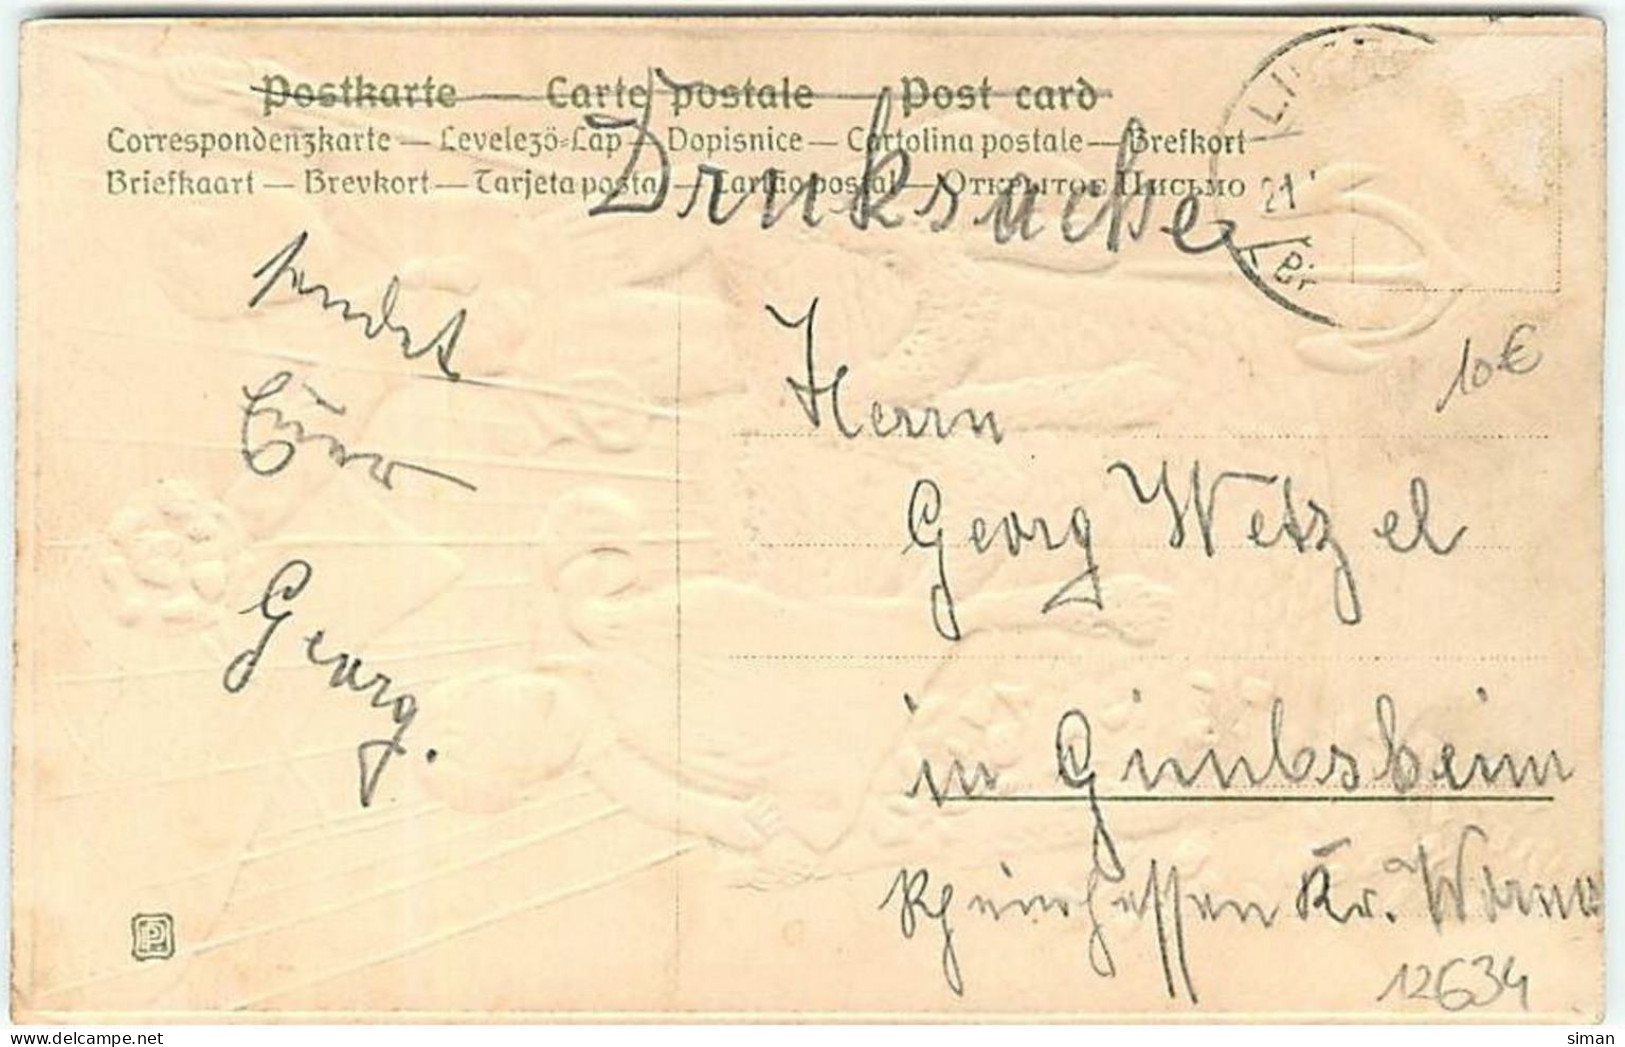 Postkarte — Carte postale — Post card
Correspondenzkarte — Levelezö-Lap — Dopisnice — Cartolina postale — Brefkort
Briefkaart — Brevkort — Tarjeta postal — Cartão postal — Открытое Письмо
Druksache
21
sendet
Euer
Georg.
Herrn
Georg Wetzel
in Gimbsheim
Rheinhessen Kr. Worms
10€
12634
P
siman